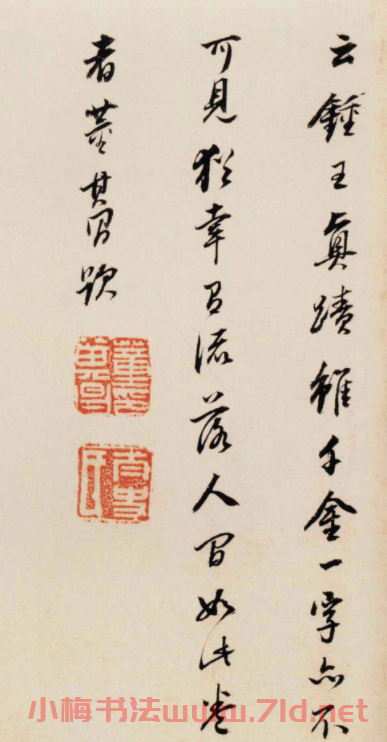 云鍾王真蹟雖千金一字亦不
可見猶幸有流落人間如此卷
者董其昌题
董其昌印
小梅书法www.7ld.net